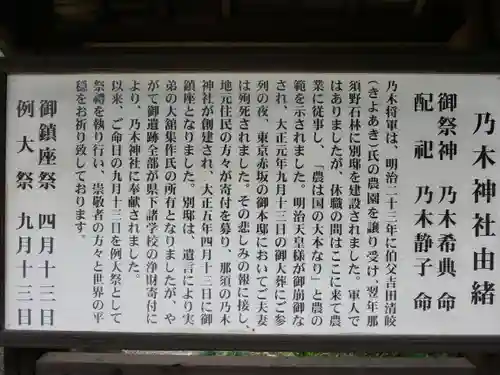 乃木神社由緒
御祭神 乃木希典命
配祀 乃木静子命
乃木将軍は、明治二十三年に伯父吉田清皎
(きよあき)氏の農園を譲り受け、翌年那
須野石林に別邸を建設されました。軍人で
はありましたが、休職の間はここに来て農
業に従事し、「農は国の大本なり」と農の
範を示されました。明治天皇様が御崩御な
され、大正元年九月十三日の御大葬にご参
列の夜、東京赤坂の御本邸においてご夫妻
は殉死されました。その悲しみの報に接し、
地元住民の方々が寄付を募り、那須の乃木
神社が創建され、大正五年四月十三日に御
鎮座となりました。別邸は、遺言により実
弟の大舘集作氏の所有となりましたが、や
がて御遺跡全部が県下諸学校の浄財寄付に
より、乃木神社に奉献されました。
以来、ご命日の九月十三日を例大祭として
祭禮を執り行い、崇敬者の方々と世界の平
穏をお祈り致しております。
御鎮座祭 四月十三日
例大祭 九月十三日